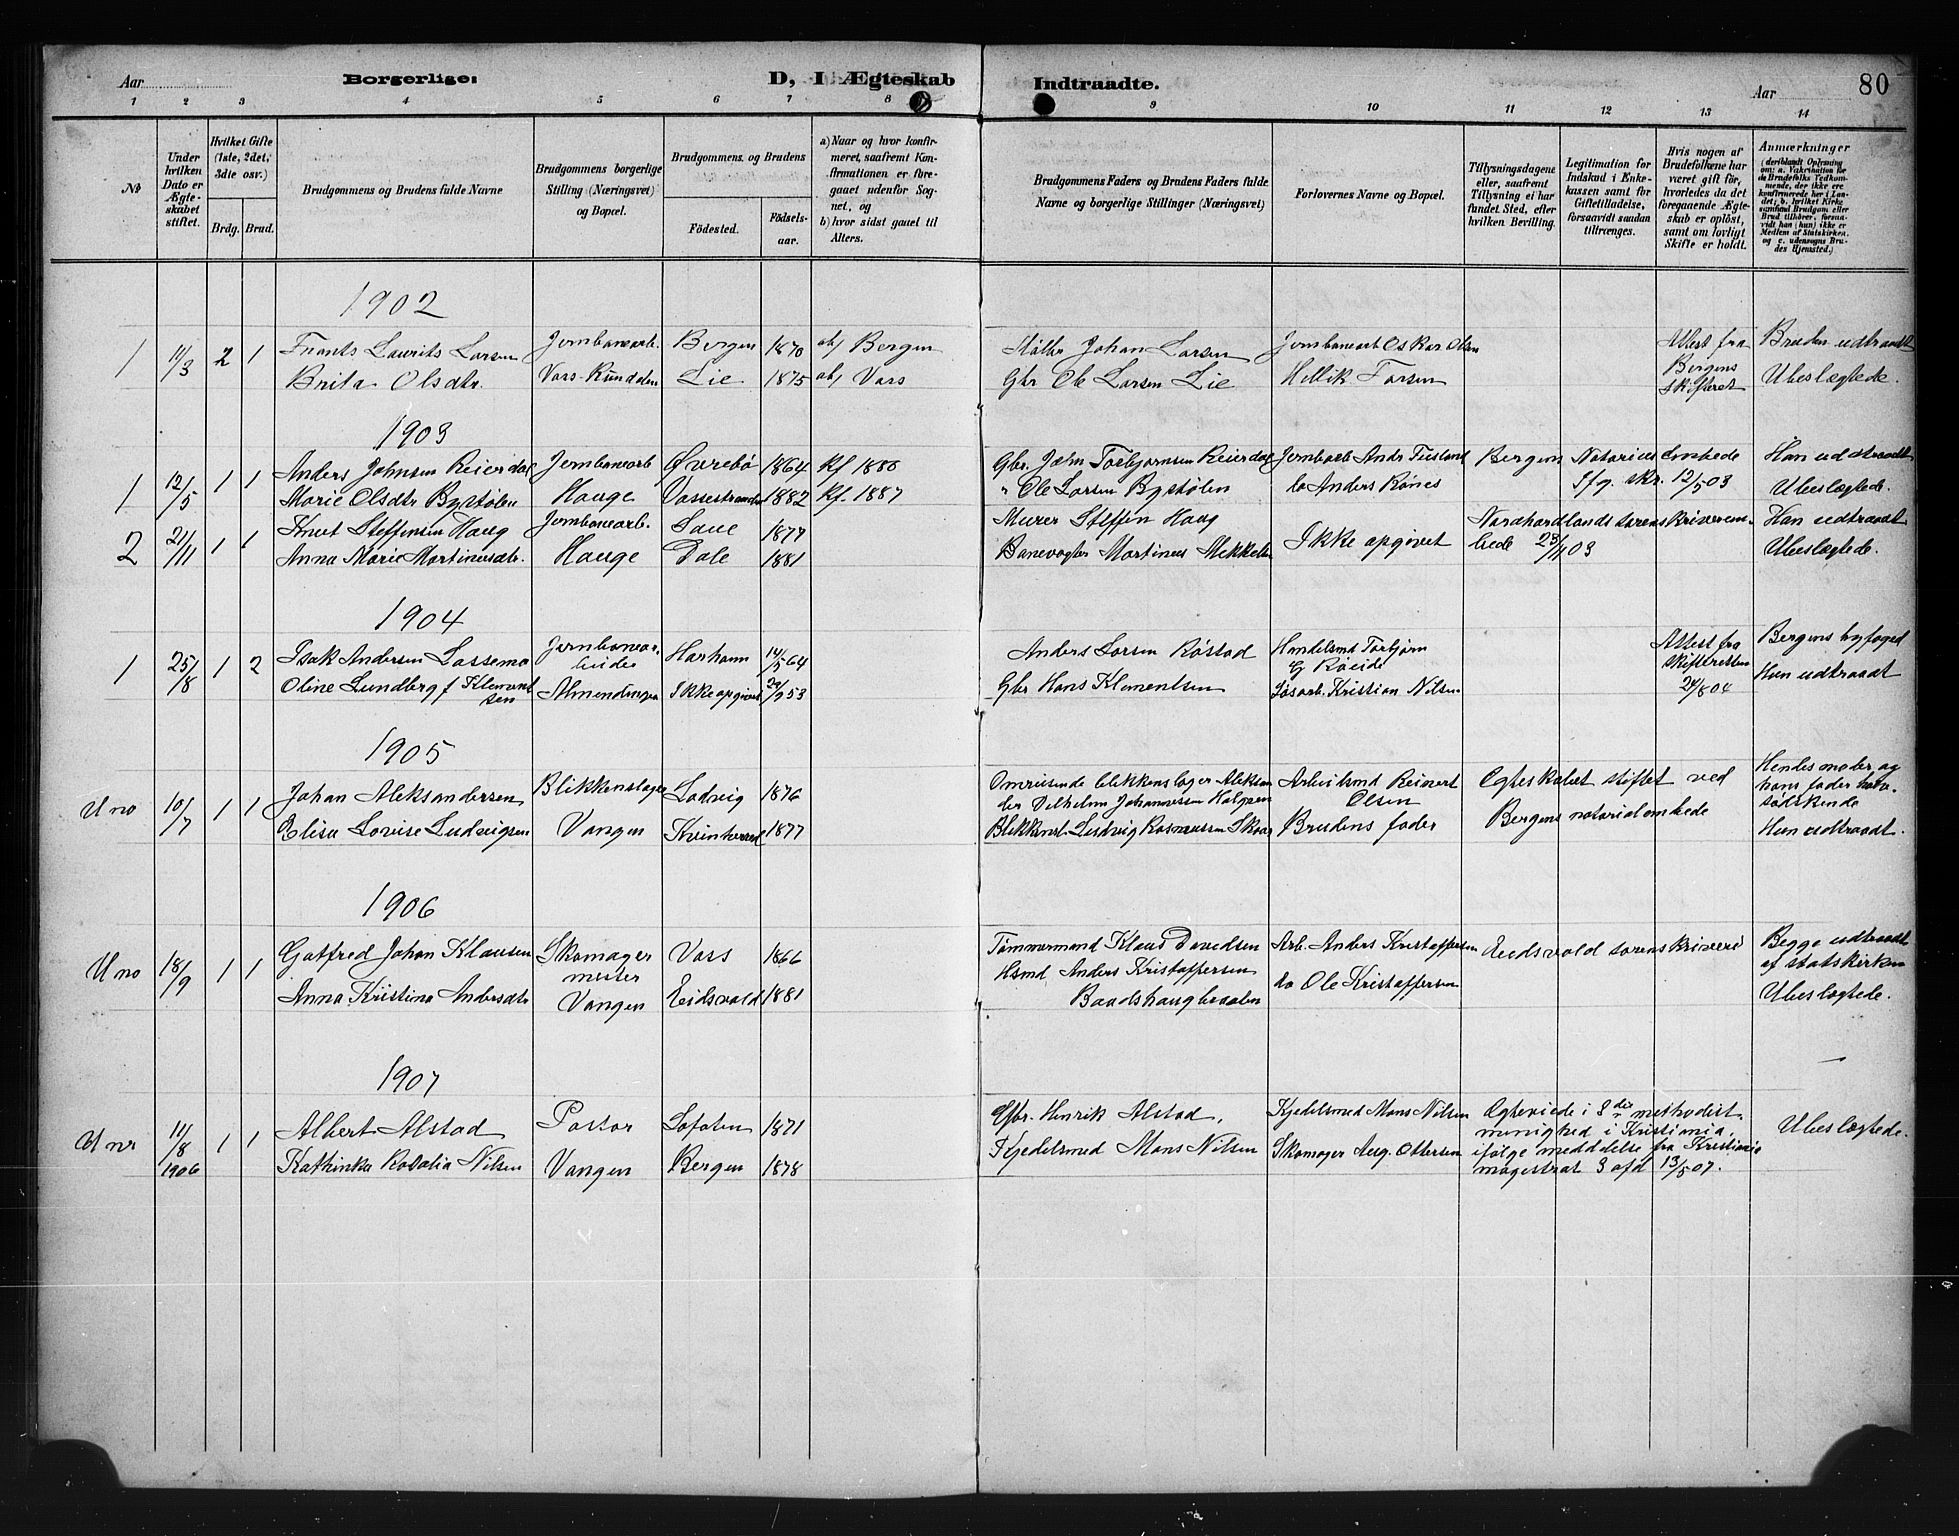 Aar
Borgerlige:
D, I Ægteskab
Indtraadte.
Aar
80
1 2 3 4 5 6 7 8 9 10 11 12 13 14
No
Under hvilken Dato er Ægteskabet stiftet.
Hvilket Gifte (1ste, 2det, 3die osv.)
Brdg. Brud.
Brudgommens og Brudens fulde Navne
Brudgommens borgerlige Stilling (Næringsvei) og Bopæl.
Brudgommens og Brudens
Fødested.
Fødselsaar.
a) Naar og hvor konfirmeret, saafremt Konfirmationen er foregaaet udenfor Sognet, og
b) hvor sidst gaaet til Alters.
Brudgommens Faders og Brudens Faders fulde Navne og borgerlige Stillinger (Næringsvei)
Forlovernes Navne og Bopæl.
Tillysningsdagene eller, saafremt Tillysning ei har fundet Sted, efter hvilken Bevilling.
Legitimation for Indskud i Enkekassen samt for Giftetilladelse, forsaavidt saadan tiltrænges.
Hvis nogen af Brudefolkene har været gift før, hvorledes da det foregaaende Ægteskab er opløst, samt om lovligt Skifte er holdt.
Anmærkninger
(deriblandt Oplysning om: a. Vakcination for de Brudefolks Vedkommende, der ikke ere konfirmerede her i Landet; b. hvilket Kirkesamfund Brudgom eller Brud tilhører, forsaavidt han (hun) ikke er Medlem af Statskirken, og c. udensogns Brudes Hjemsted.)
1902
1 11/3 2 1 Frants Laurits Larsen Jernbanearb. Bergen 1870 a/ Bergen Johan Larsen Jernbanearb Oskar Olsen Attest fra Bruden udtraadt
Brita Olsdtr. Vors-Rundalen Lie 1875 a/ Vors Gbr Ole Larsen Lie Hellik Bergens skifteret Ubeslægtede.
1903
1 12/5 1 1 Anders Johnsen Reierdal Jernbanearb Øvrebø 1864 kf 1880 Gbr. John Torbjørnsen Reierdal Jernbarb Andr Fusland Bergens Notarius Embede Han udtraadt
Marie Olsdtr Bystølen Hauge Vossestranden 1882 kf. 1887 " Ole Larsen Bystølen do Anders Rones skr. 12/5 03 Ubeslægtede.
2 21/11 1 1 Knut Steffensen Haug Jernbanearb. 1877 Murer Steffen Haug Ikke opgivet Nordhordlands sorenskriverem- Han udtraadt
Anna Marie Martinusdtr. Hauge Dale 1881 Banevogter Martinus Mikkelsen bede 23/11 03 Ubeslægtede.
1904
1 25/8 1 2 Isak Andersen Lassemo Jernbanear- beider Harham 14/5 64 Anders Larsen Røstad Handelsmd Torbjørn G Røeide Attest fra skifteretten Bergens byfoged
Oline Lundberg f Klement sen Almendingen Ikke opgivet 29/9 53 Gbr Hans Klementsen Løsarb. Kristian Nilsen 24/8 04 Hun udtraadt
1905
U no 10/7 1 1 Johan Aleksandersen Blikkenslager Ladvig 1876 Omreisende blikkenslager Aleksan- der Vilhelm Johannessen Arbeidsmd Reinert Olsen Egteskabet stiftet ved Hendes moder og hans fader halv- sødskende
Elisa Lovise Ludvigsen Vangen Kvinherred 1877 Blikkensl. Ludvig Rasmussen Brudens fader Bergens notarialembede Hun udtraadt.
1906
U no 18/9 1 1 Gotfred Johan Klausen Skomager mester Vors 1866 Tømmermand Klaus Davidsen Arb. Anders Kristoffersen Eidsvold sorenskriveri Begge udtraadt af statskirken
Anna Kristina Andersdtr Vangen Eidsvold 1881 Hsmd Anders Kristoffersen Baadshaugbraaten do Ole Kristoffersen Ubeslægtede.
1907
U nr 11/8 1906 1 1 Albert Alstad Pastor Lofoten 1871 Gbr. Henrik Alstad, Kjedelsmed Mons Nilsen Egteviede i 3die methodist- menighed i Kristiania, Ubeslægtede.
Kathinka Rosalia Nilsen Vangen Bergen 1878 Kjedelsmed Mons Nilsen Skomager Aug. Ottersen ifølge meddelelse fra Kristiania magistrat 3 afd 13/5 07.